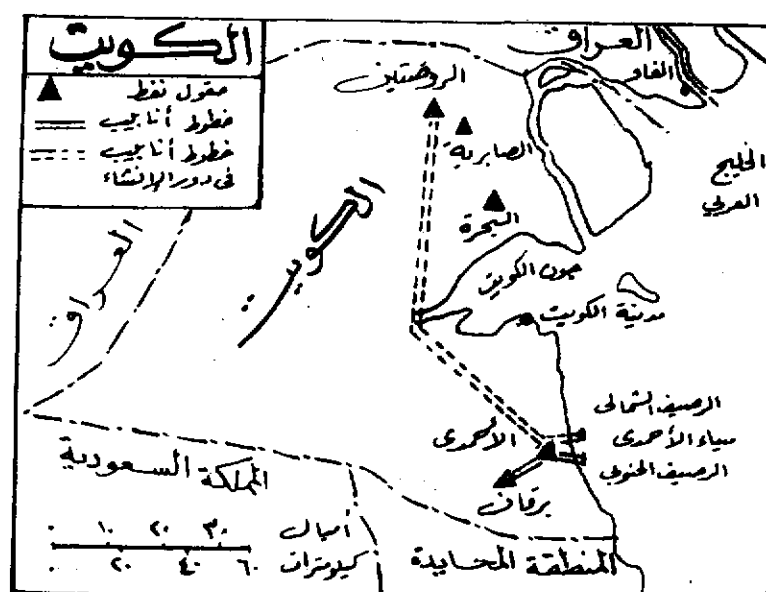 الكويت
حقول نفط
خطوط أنابيب
خطوط أنابيب
فى دور الإنشاء
العراق
الفاو
الروضتين
الصابرية
البحرة
الخليج
العربي
الكويت
العراق
جون الكويت
مدينة الكويت
الرصيف الشمالى
ميناء الأحمدى
الرصيف الجنوبي
الأحمدى
برقان
المملكة السعودية
المنطقة المحايدة
٠ ١٠ ٢٠ ٣٠ أميال
٠ ٢٠ ٤٠ ٦٠ كيلومترات